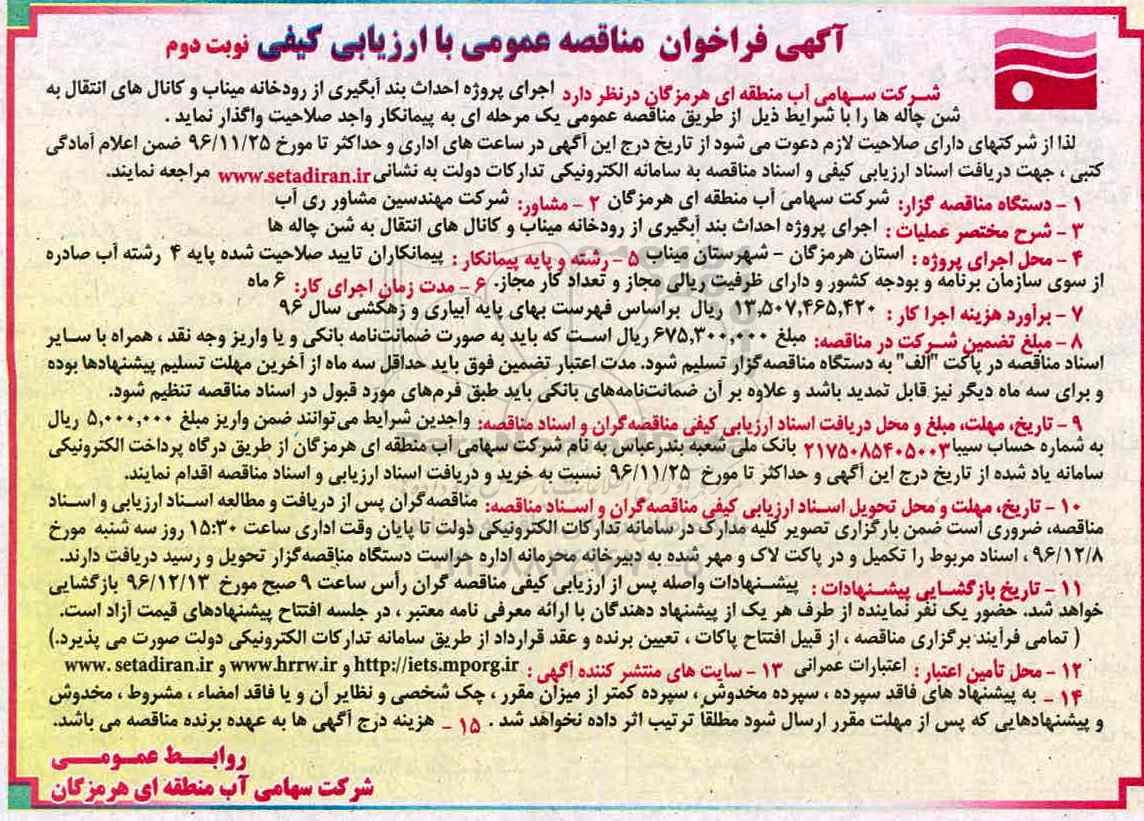 آگهی فراخوان مناقصه عمومی با ارزیابی کیفی نوبت دوم
شرکت سهامی آب منطقه ای هرمزگان درنظر دارد اجرای پروژه احداث بند آبگیری از رودخانه میناب و کانال های انتقال به
شن چاله ها را با شرایط ذیل از طریق مناقصه عمومی یک مرحله ای به پیمانکار واجد صلاحیت واگذار نماید .
لذا از شرکتهای دارای صلاحیت لازم دعوت می شود از تاریخ درج این آگهی در ساعت های اداری و حداکثر تا مورخ ۹۶/۱۱/۲۵ ضمن اعلام آمادگی
کتبی ، جهت دریافت اسناد ارزیابی کیفی و اسناد مناقصه به سامانه الکترونیکی تدارکات دولت به نشانی www.setadiran.ir مراجعه نمایند.
۱ - دستگاه مناقصه گزار: شرکت سهامی آب منطقه ای هرمزگان ۲ - مشاور: شرکت مهندسین مشاور ری آب
۳ - شرح مختصر عملیات : اجرای پروژه احداث بند آبگیری از رودخانه میناب و کانال های انتقال به شن چاله ها
۴ - محل اجرای پروژه : استان هرمزگان - شهرستان میناب ۵ - رشته و پایه پیمانکار : پیمانکاران تایید صلاحیت شده پایه ۴ رشته آب صادره
از سوی سازمان برنامه و بودجه کشور و دارای ظرفیت ریالی مجاز و تعداد کار مجاز. ۶ - مدت زمان اجرای کار: ۶ ماه
۷ - برآورد هزینه اجرا کار : ۱۳,۵۰۷,۴۶۵,۴۲۰ ریال براساس فهرست بهای پایه آبیاری و زهکشی سال ۹۶
۸ - مبلغ تضمین شرکت در مناقصه: مبلغ ۶۷۵,۳۰۰,۰۰۰ ریال است که باید به صورت ضمانت‌نامه بانکی و یا واریز وجه نقد ، همراه با سایر
اسناد مناقصه در پاکت "الف" به دستگاه مناقصه گزار تسلیم شود. مدت اعتبار تضمین فوق باید حداقل سه ماه از آخرین مهلت تسلیم پیشنهادها بوده
و برای سه ماه دیگر نیز قابل تمدید باشد و علاوه بر آن ضمانت‌نامه‌های بانکی باید طبق فرم‌های مورد قبول در اسناد مناقصه تنظیم شود.
۹ - تاریخ، مهلت، مبلغ و محل دریافت اسناد ارزیابی کیفی مناقصه‌گران و اسناد مناقصه: واجدین شرایط می‌توانند ضمن واریز مبلغ ۵,۰۰۰,۰۰۰ ریال
به شماره حساب سیبا ۲۱۷۵۰۸۵۴۰۵۰۰۳ بانک ملی شعبه بندرعباس به نام شرکت سهامی آب منطقه ای هرمزگان از طریق درگاه پرداخت الکترونیکی
سامانه یاد شده از تاریخ درج این آگهی و حداکثر تا مورخ ۹۶/۱۱/۲۵ نسبت به خرید و دریافت اسناد ارزیابی و اسناد مناقصه اقدام نمایند.
۱۰ - تاریخ، مهلت و محل تحویل اسناد ارزیابی کیفی مناقصه‌گران و اسناد مناقصه: مناقصه‌گران پس از دریافت و مطالعه اسناد ارزیابی و اسناد
مناقصه، ضروری است ضمن بارگزاری تصویر کلیه مدارک در سامانه تدارکات الکترونیکی دولت تا پایان وقت اداری ساعت ۱۵:۳۰ روز سه شنبه مورخ
۹۶/۱۲/۸ ، اسناد مربوط را تکمیل و در پاکت لاک و مهر شده به دبیرخانه محرمانه اداره حراست دستگاه مناقصه‌گزار تحویل و رسید دریافت دارند.
۱۱ - تاریخ بازگشایی پیشنهادات : پیشنهادات واصله پس از ارزیابی کیفی مناقصه گران رأس ساعت ۹ صبح مورخ ۹۶/۱۲/۱۳ بازگشایی
خواهد شد. حضور یک نفر نماینده از طرف هر یک از پیشنهاد دهندگان با ارائه معرفی نامه معتبر ، در جلسه افتتاح پیشنهادهای قیمت آزاد است.
( تمامی فرآیند برگزاری مناقصه ، از قبیل افتتاح پاکات ، تعیین برنده و عقد قرارداد از طریق سامانه تدارکات الکترونیکی دولت صورت می پذیرد.)
۱۲ - محل تأمین اعتبار : اعتبارات عمرانی ۱۳ - سایت های منتشر کننده آگهی : http://iets.mporg.ir و www.hrrw.ir و www.setadiran.ir
۱۴ - به پیشنهاد های فاقد سپرده ، سپرده مخدوش ، سپرده کمتر از میزان مقرر ، چک شخصی و نظایر آن و یا فاقد امضاء ، مشروط ، مخدوش
و پیشنهادهایی که پس از مهلت مقرر ارسال شود مطلقاً ترتیب اثر داده نخواهد شد . ۱۵ - هزینه درج آگهی ها به عهده برنده مناقصه می باشد.
روابط عمومی
شرکت سهامی آب منطقه ای هرمزگان